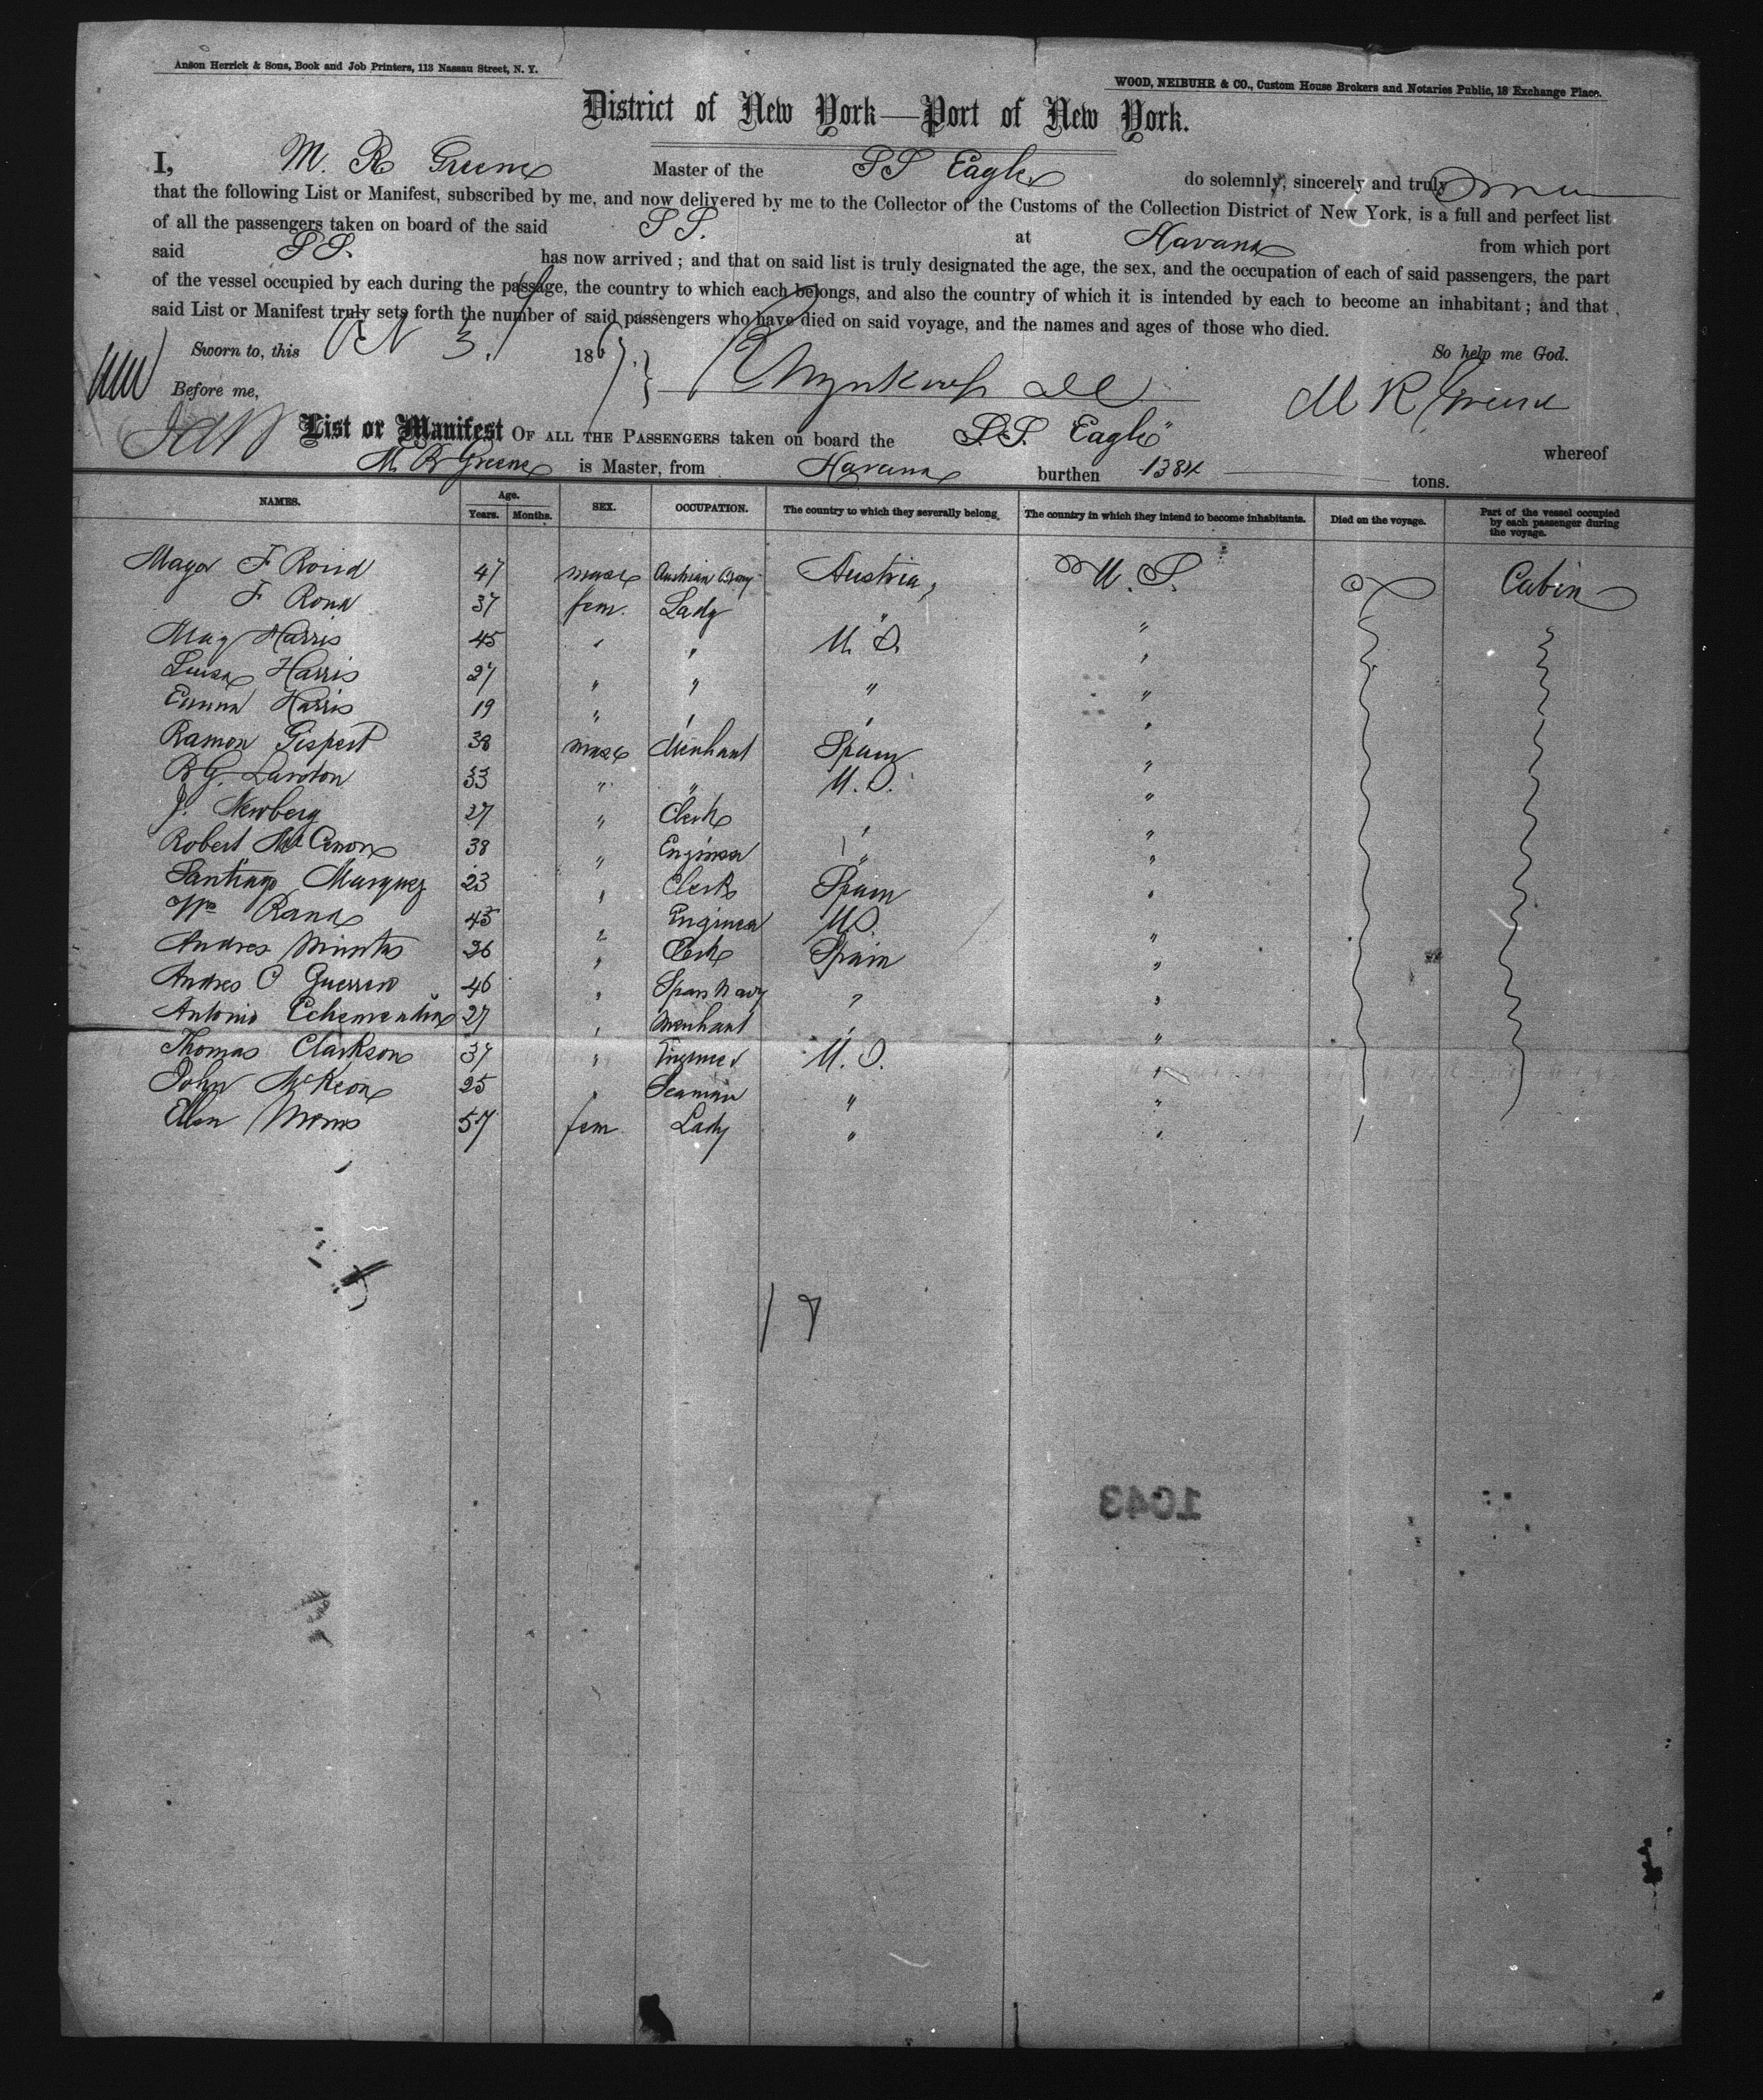 Anson Herrick & Sons, Book and Job Printers, 113 Nassau Street, N. Y.
WOOD, NEIBUHR & CO., Custom House Brokers and Notaries Public, 18 Exchange Place.
District of New York—Port of New York.
I, M. R Greene Master of the SS Eagle do solemnly, sincerely and truly
that the following List or Manifest, subscribed by me, and now delivered by me to the Collector of the Customs of the Collection District of New York, is a full and perfect list
of all the passengers taken on board of the said SS. at Havana from which port
said SS. has now arrived; and that on said list is truly designated the age, the sex, and the occupation of each of said passengers, the part
of the vessel occupied by each during the passage, the country to which each belongs, and also the country of which it is intended by each to become an inhabitant; and that
said List or Manifest truly sets forth the number of said passengers who have died on said voyage, and the names and ages of those who died.
Sworn to, this 3. 186 So help me God.
Before me, M R Greene
List or Manifest OF ALL THE PASSENGERS taken on board the S.S. Eagle" whereof
M. R Greene is Master, from Havana burthen 1384 tons.
NAMES. Age. Years. Months. SEX. OCCUPATION. The country to which they severally belong. The country in which they intend to become inhabitants. Died on the voyage. Part of the vessel occupied by each passenger during the voyage.
F 47 male Austrian Austria, U. S. Cabin
F Rond 37 fem. Lady " "
May Harris 45 " " U. S. "
Luisa Harris 27 " " " "
Emma Harris 19 " " " "
Ramon Gispert 38 male Merchant Spain "
B G. 33 " " U. S. "
J. Newberg 27 " Clerk " "
Robert 38 " Engineer " "
Santiago Marquez 23 " Clerk Spain "
Wm Rand 45 " Engineer U S. "
Andres 26 " Clerk Spain "
Andres C Guerrero 46 " Span Navy " "
Antonio 27 " Merchant " "
Thomas Clarkson 37 " Engineer U. S. "
John McKeon 25 " Seaman " "
Ellen Morris 57 fem Lady " "
17
1043